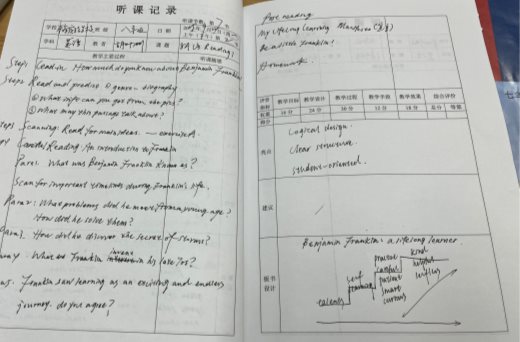 听课记录
听课节数
学校
班级 八年级 日期
学科 英语 教者 课题 8A U2 Reading 1
教学主要过程 听课随想
Step1 Lead in How much do you know about Benjamin Franklin?
Step2 Read and predict ① genre - biography
② What info can you get from the pics?
③ What may the passage talk about?
Step3 Scanning: Read for main ideas. — exercise A
Careful Reading: An introduction to Franklin
Para1. What was Benjamin Franklin known as?
Scan for important timelines during Franklin's life.
Para2: What problems did he meet from a young age?
How did he solve them?
Para3. How did he discover the secret of storms?
What Franklin invent in his life for?
Franklin saw learning as an exciting and endless
journey. do you agree?
Post reading
My lifelong learning
Be a little Franklin!
Homework
评价 教学目标 教学设计 教学过程 教学手段 教学效果 综合评价
权重 16分 24分 30分 12分 18分 总分 等第
得分
亮点
Logical design.
Clear structure.
student-oriented.
建议
板书
设计
Benjamin Franklin: a lifelong learner
talents
self
learning
practical
careful
patient
smart
curious
kind
helpful
selfless